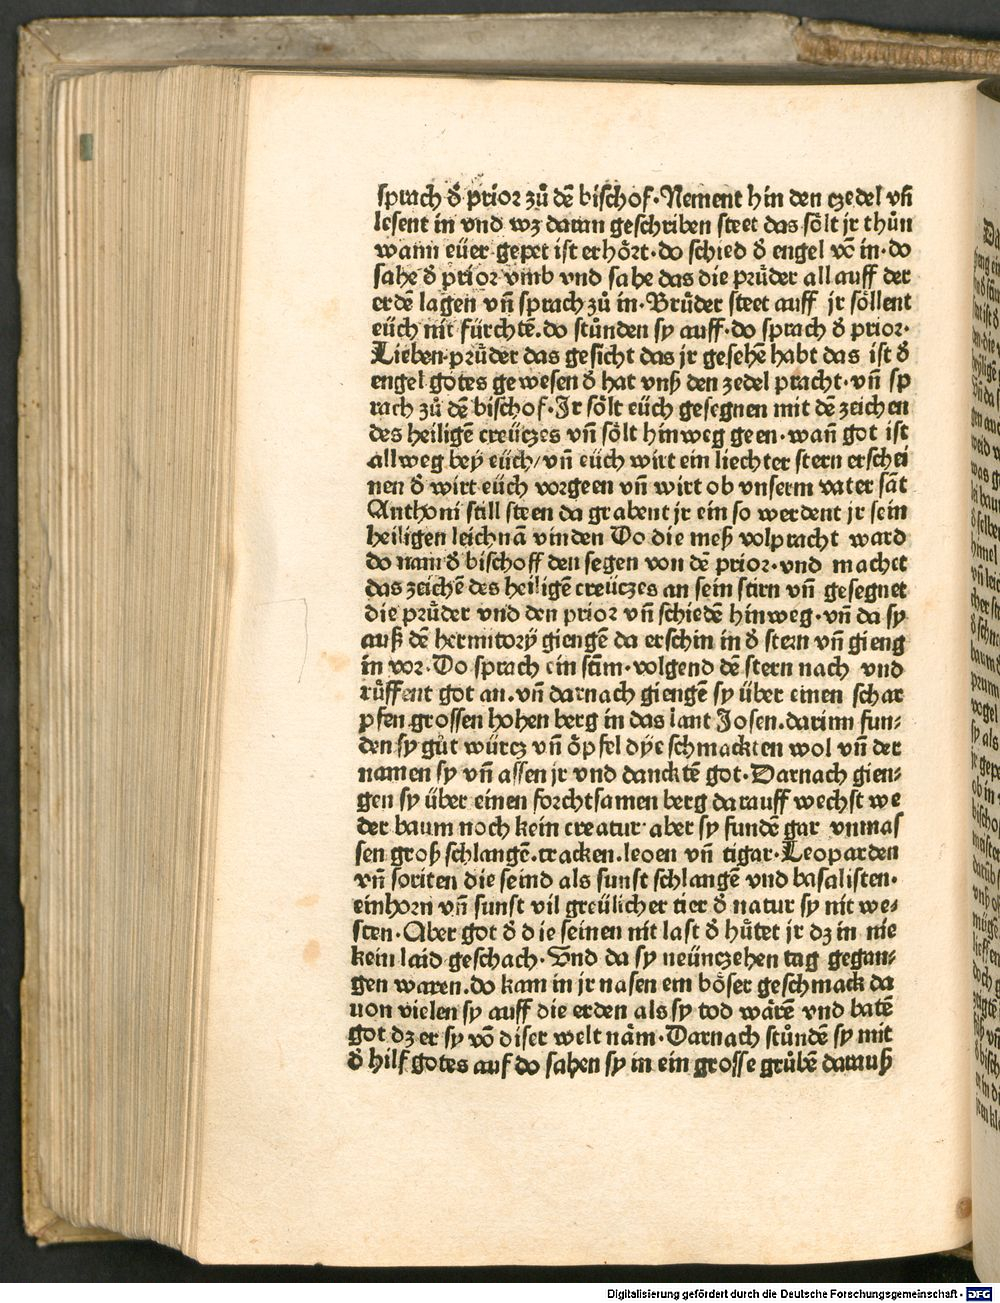 sprach d̕ prior zů dē bischof·Nement hin den czedel vn̄
lesent in vnd wz daran geschriben steet das sölt jr thůn
wann eüer gepet ist erhört·do schied d̕ engel vō in·do
sahe d̕ prior vmb vnd sahe das die průder all auff der
erdē lagen vn̄ sprach zů in·Brůder steet auff jr söllent
eüch nit fürchtē.do stůnden sy auff·do sprach d̕ prior·
Lieben průder das gesicht das jr gesehē habt das ist d̕
engel gotes gewesen d̕ hat vnß den zedel pracht·vn̄ sp
rach zů dē bischof·Jr sölt eüch gesegnen mit dē zeichen
des heiligē creüczes vn̄ sölt hinweg geen·wan̄ got ist
allweg beÿ eüch/vn̄ eüch wirt ein liechter stern erschei
nen d̕ wirt eüch vorgeen vn̄ wirt ob vnserm vater sāt
Anthoni still steen da grabent jr ein so werdent jr sein
heiligen leichnā vinden Do die meß volpracht ward
do nam d̕ bischoff den segen von dē prior·vnd machet
das zeichē des heiligē creüczes an sein stirn vn̄ gesegnet
die průder vnd den prior vn̄ schiedē hinweg·vn̄ da sy
auß dē hermitorÿ giengē da erschin in d̕ stern vn̄ gieng
in vor·Do sprach ein stīm·volgend dē stern nach vnd
růffent got an.vn̄ darnach giengē sy über einen schar
pfen grossen hohen berg in das lant Josen.darinn fun⸗
den sy gůt würcz vn̄ öpfel dÿe schmackten wol vn̄ der
namen sy vn̄ assen jr vnd dancktē got·Darnach gien⸗
gen sy über einen forchtsamen berg darauff wechst we
der baum noch kein creatur·aber sy fundē gar vnmas
sen groß schlangē.tracken.leoen vn̄ tigar·Leoparden
vn̄ soriten die seind als sunst schlangē vnd basalisten·
einhorn vn̄ sunst vil greülicher tier d̕ natur sy nit we⸗
sten·Aber got d̕ die seinen nit last d̕ hůtet jr dz in nie
kein laid geschach·Vnd da sy neünczehen tag gegan⸗
gen waren.do kam in jr nasen ein böser geschmack da
uon vielen sy auff die erden als sy tod wärē vnd batē
got dz er sy vō diser welt näm·Darnach stůndē sy mit
d̕ hilf gotes auf do sahen sy in ein grosse grůbē darauß
Digitalisierung gefördert durch die Deutsche Forschungsgemeinschaft - DFG